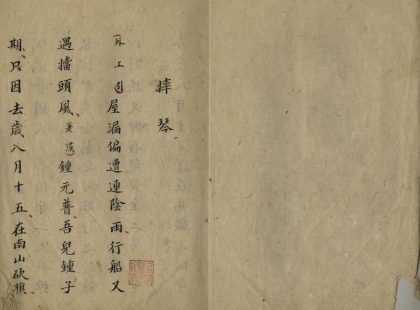 摔琴
(外上引)屋漏偏遭連陰雨行船又
遇擋頭風(老漢)鍾元普吾兒鍾子
期只因去歲八月十五在南山砍樵